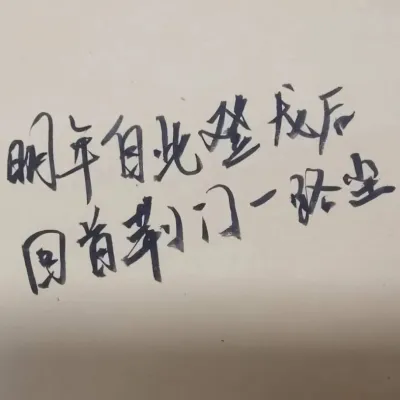 明年自此登龙后
回首荆门一路尘